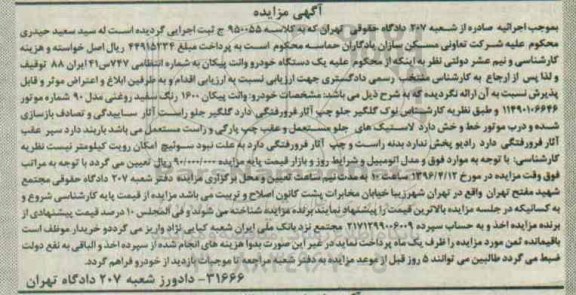 آگهی مزایده
بموجب اجرائیه صادره از شعبه ۲۰۷ دادگاه حقوقی تهران که به کلاسه ۹۵۰۰۵۵ ج ثبت اجرایی گردیده است له سید سعید حیدری
محکوم علیه شرکت تعاونی مسکن سازان یادگاران حماسه محکوم است به پرداخت مبلغ ۴۴۹۱۵۲۳۴ ریال اصل خواسته و هزینه
کارشناسی و نیم عشر دولتی نظر به اینکه از محکوم علیه یک دستگاه خودرو وانت پیکان به شماره انتظامی ۷۴۷س۴۱ ایران ۸۸ توقیف
و لذا پس از ارجاع به کارشناس منتخب رسمی دادگستری جهت ارزیابی نسبت به ارزیابی اقدام و به طرفین ابلاغ و اعتراض موثر و قابل
پذیرش نسبت به آن ارائه نگردیده که به شرح ذیل می باشد: مشخصات خودرو: وانت پیکان ۱۶۰۰ رنگ سفید روغنی مدل ۹۰ شماره موتور
۱۱۴۹۰۱۰۶۶۴۶ و طبق نظریه کارشناس نوک گلگیر جلو چپ آثار فرورفتگی دارد گلگیر جلو راست آثار ساییدگی و تصادف بازسازی
شده و درب موتور خط و خش دارد لاستیک های جلو مستعمل و عقب چپ پارگی و راست مستعمل می باشد باربند دارد سپر عقب
آثار فرورفتگی دارد رادیو پخش ندارد بدنه راست و چپ آثار فرورفتگی دارد به علت نبود سوئیچ امکان رویت کیلومتر نیست نظریه
کارشناسی: با توجه به موارد فوق و مدل اتومبیل و شرایط روز و بازار قیمت پایه مزایده ۹۰/۰۰۰/۰۰۰ ریال تعیین می گردد با توجه به مراتب
فوق وقت مزایده در مورخ ۱۳۹۶/۴/۱۲ ساعت ۱۰ به مدت نیم ساعت تعیین و محل برگزاری مزایده دفتر شعبه ۲۰۷ دادگاه حقوقی مجتمع
شهید مفتح تهران واقع در تهران شهرزیبا خیابان مخابرات پشت کانون اصلاح و تربیت می باشد مزایده از قیمت پایه کارشناسی شروع و
به کسانیکه در جلسه مزایده بالاترین قیمت را پیشنهاد نمایند برنده مزایده شناخته می شوند و فی المجلس ۱۰ درصد قیمت پیشنهادی از
برنده مزایده اخذ و به حساب سپرده ۲۱۷۱۲۹۹۰۰۶۰۰۹ مجتمع نزد بانک ملی ایران شعبه کیایی نژاد واریز می گردد و خریدار موظف است
باقیمانده ثمن مورد مزایده را ظرف یک ماه پرداخت نماید در غیر این صورت بدوا هزینه های انجام شده از سپرده اخذ و الباقی به نفع دولت
ضبط می گردد طالبین می توانند ۵ روز قبل از موعد مزایده به دفتر شعبه مراجعه تا موجبات بازدید از خودرو فراهم گردد.
۳۱۶۶۶- دادورز شعبه ۲۰۷ دادگاه تهران